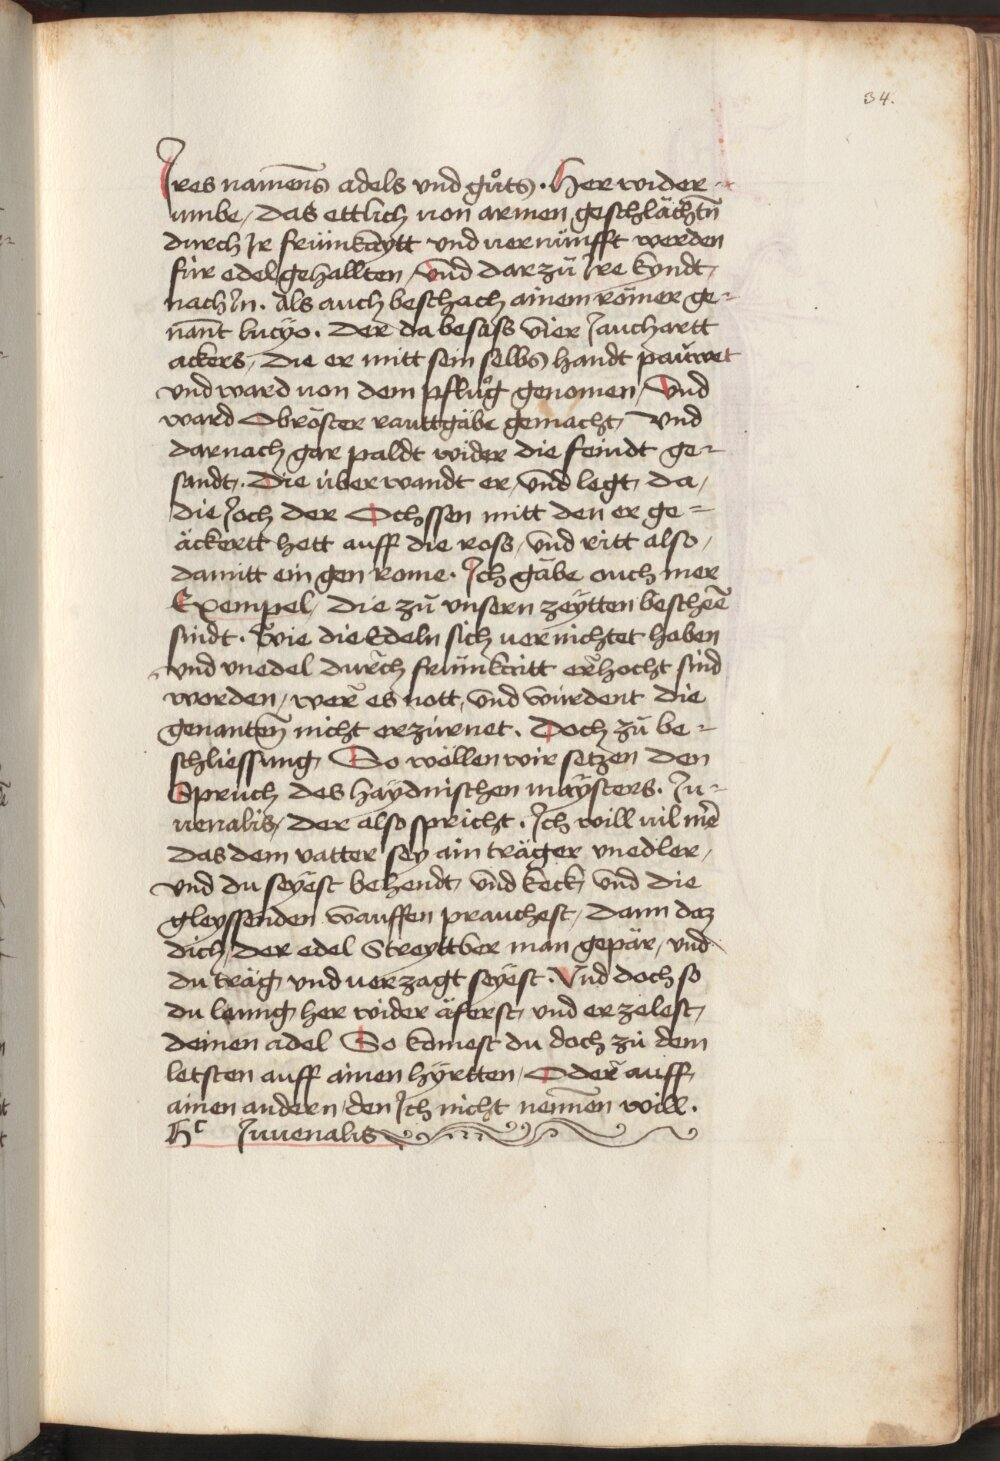 34.
Jres namens̄ adels vnd gůts. Herwider-
umbe, das ettlich von armen geschlächtn̄
durch Jr frümkäytt vnd vernünfft werden
für edel gehallten, vnd darzů Jre kyndt,
nach Jn. Als auch beschach ainem römer ge-
nant lucyo. Der da besass vier Jauchartt
ackers, die er mitt sein selbs handt pauwet
vnd ward von dem pflůg genomen, Vnd
ward Obröster rauttgäbe gemacht, Vnd
darnach gar paldt wider die feindt ge-
sandt. Die überwandt er, vnd legt, da,
die Joch der Ochssen mitt den er ge-
äckertt hett auff die ross, vnd ritt also,
damitt ein gen rome. Jch gäbe ouch mer
Exempel, die zů vnsern zeytten bescheē
sindt. Wie die Edeln sich vernichtet haben
vnd vnedel durch frümkaitt erhocht sind
worden, wer es nott, vnd würdent die
genanten̄ nicht erzürnet. Doch zů be-
schliessung, So wöllen wir setzen den
Spruch des haydnischen maysters. Ju-
uenalis, der also spricht. Jch will vil mē
das dem vatter sey ain träger vnedler,
vnd du seyest behendt, vnd keck, vnd die
gleyssenden wauffen prauchest, dann daz
dich, der edel Streyttber man gepär, vnd
du träg, vnd verzagt seyest. Vnd doch so
du lanng her wider äferst, vnd erzelest,
deinen adel So komest du doch zů dem
letsten auff ainen hyrtten, Oder auff,
ainen andern, den Jch nicht nennen will.
Hc Juuenalis